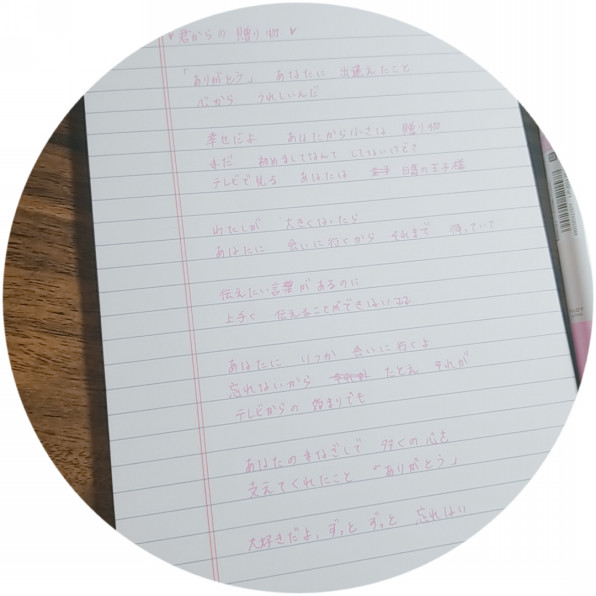 ♥君からの 贈り物♥
「ありがとう」 あなたに 出逢えたこと
心から うれしいんだ
幸せだよ あなたから小さな 贈り物
まだ 初めましてなんて してないけどさ
テレビで見る あなたは 白馬の王子様
わたしが 大きくなったら
あなたに 会いに行くから それまで 待っていて
伝えたい言葉があるのに
上手く 伝えることができないよ
あなたに いつか 会いに行くよ
忘れないから たとえ それが
テレビからの 始まりでも
あなたのまなざしで 多くの心を
支えてくれたこと 「ありがとう」
大好きだよ、ずっと ずっと 忘れない